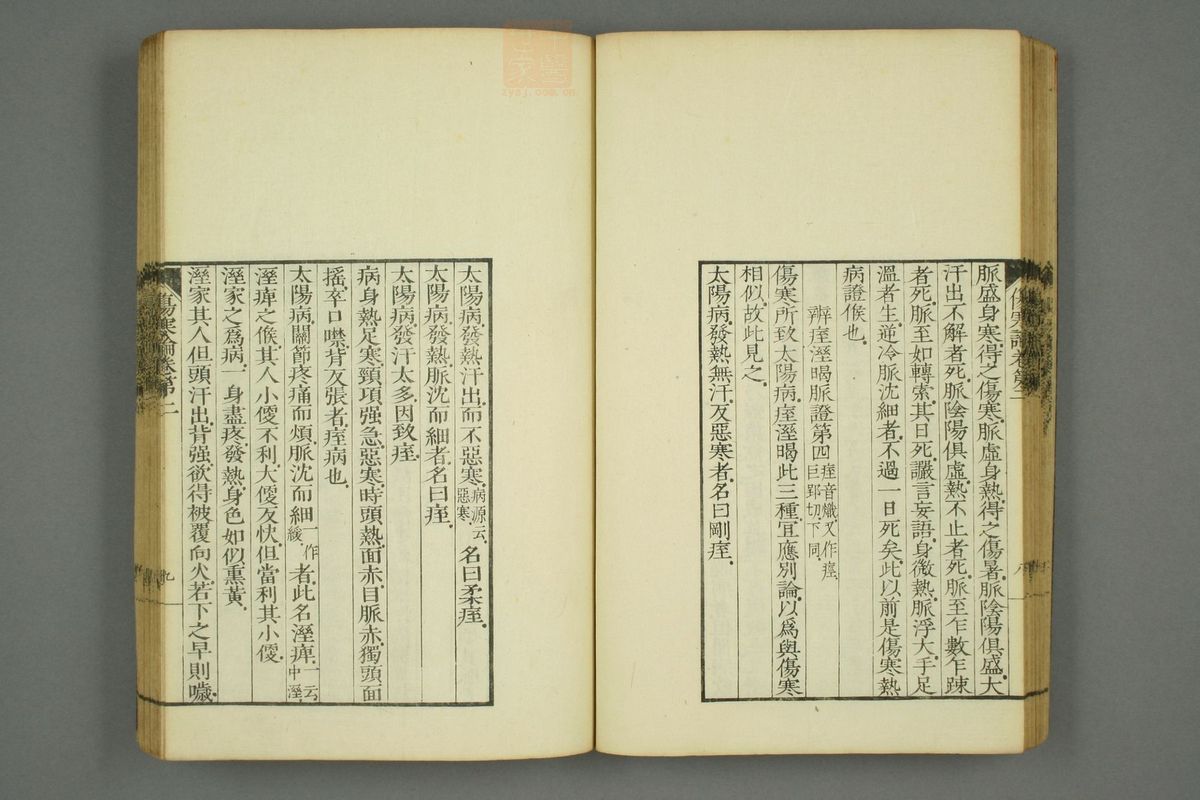 脈盛身寒得之傷寒脈虛身熱得之傷暑脈陰陽俱盛大
汗出不解者死脈陰陽俱虛熱不止者死脈至乍數乍踈
者死脈至如轉索其日死讝言妄語身微熱脈浮大手足
溫者生逆冷脈沈細者不過一日死矣此以前是傷寒熱
病證候也
辨痓溼暍脈證第四 痓音熾又作痙巨郢切下同
傷寒所致太陽病痓溼暍此三種宜應別論以爲與傷寒
相似故此見之
太陽病發熱無汗反惡寒者名曰剛痓
太陽病發熱汗出而不惡寒 病源云惡寒 名曰柔痓
太陽病發熱脈沈而細者名曰痓
太陽病發汗太多因致痓
病身熱足寒頸項强急惡寒時頭熱面赤目脈赤獨頭面
搖卒口噤背反張者痓病也
太陽病關節疼痛而煩脈沈而細 一作緩 者此名溼痺 一云中溼
溼痺之候其人小便不利大便反快但當利其小便
溼家之爲病一身盡疼發熱身色如似熏黃
溼家其人但頭汗出背强欲得被覆向火若下之早則噦
傷寒論卷第二
九
zysj.com.cn